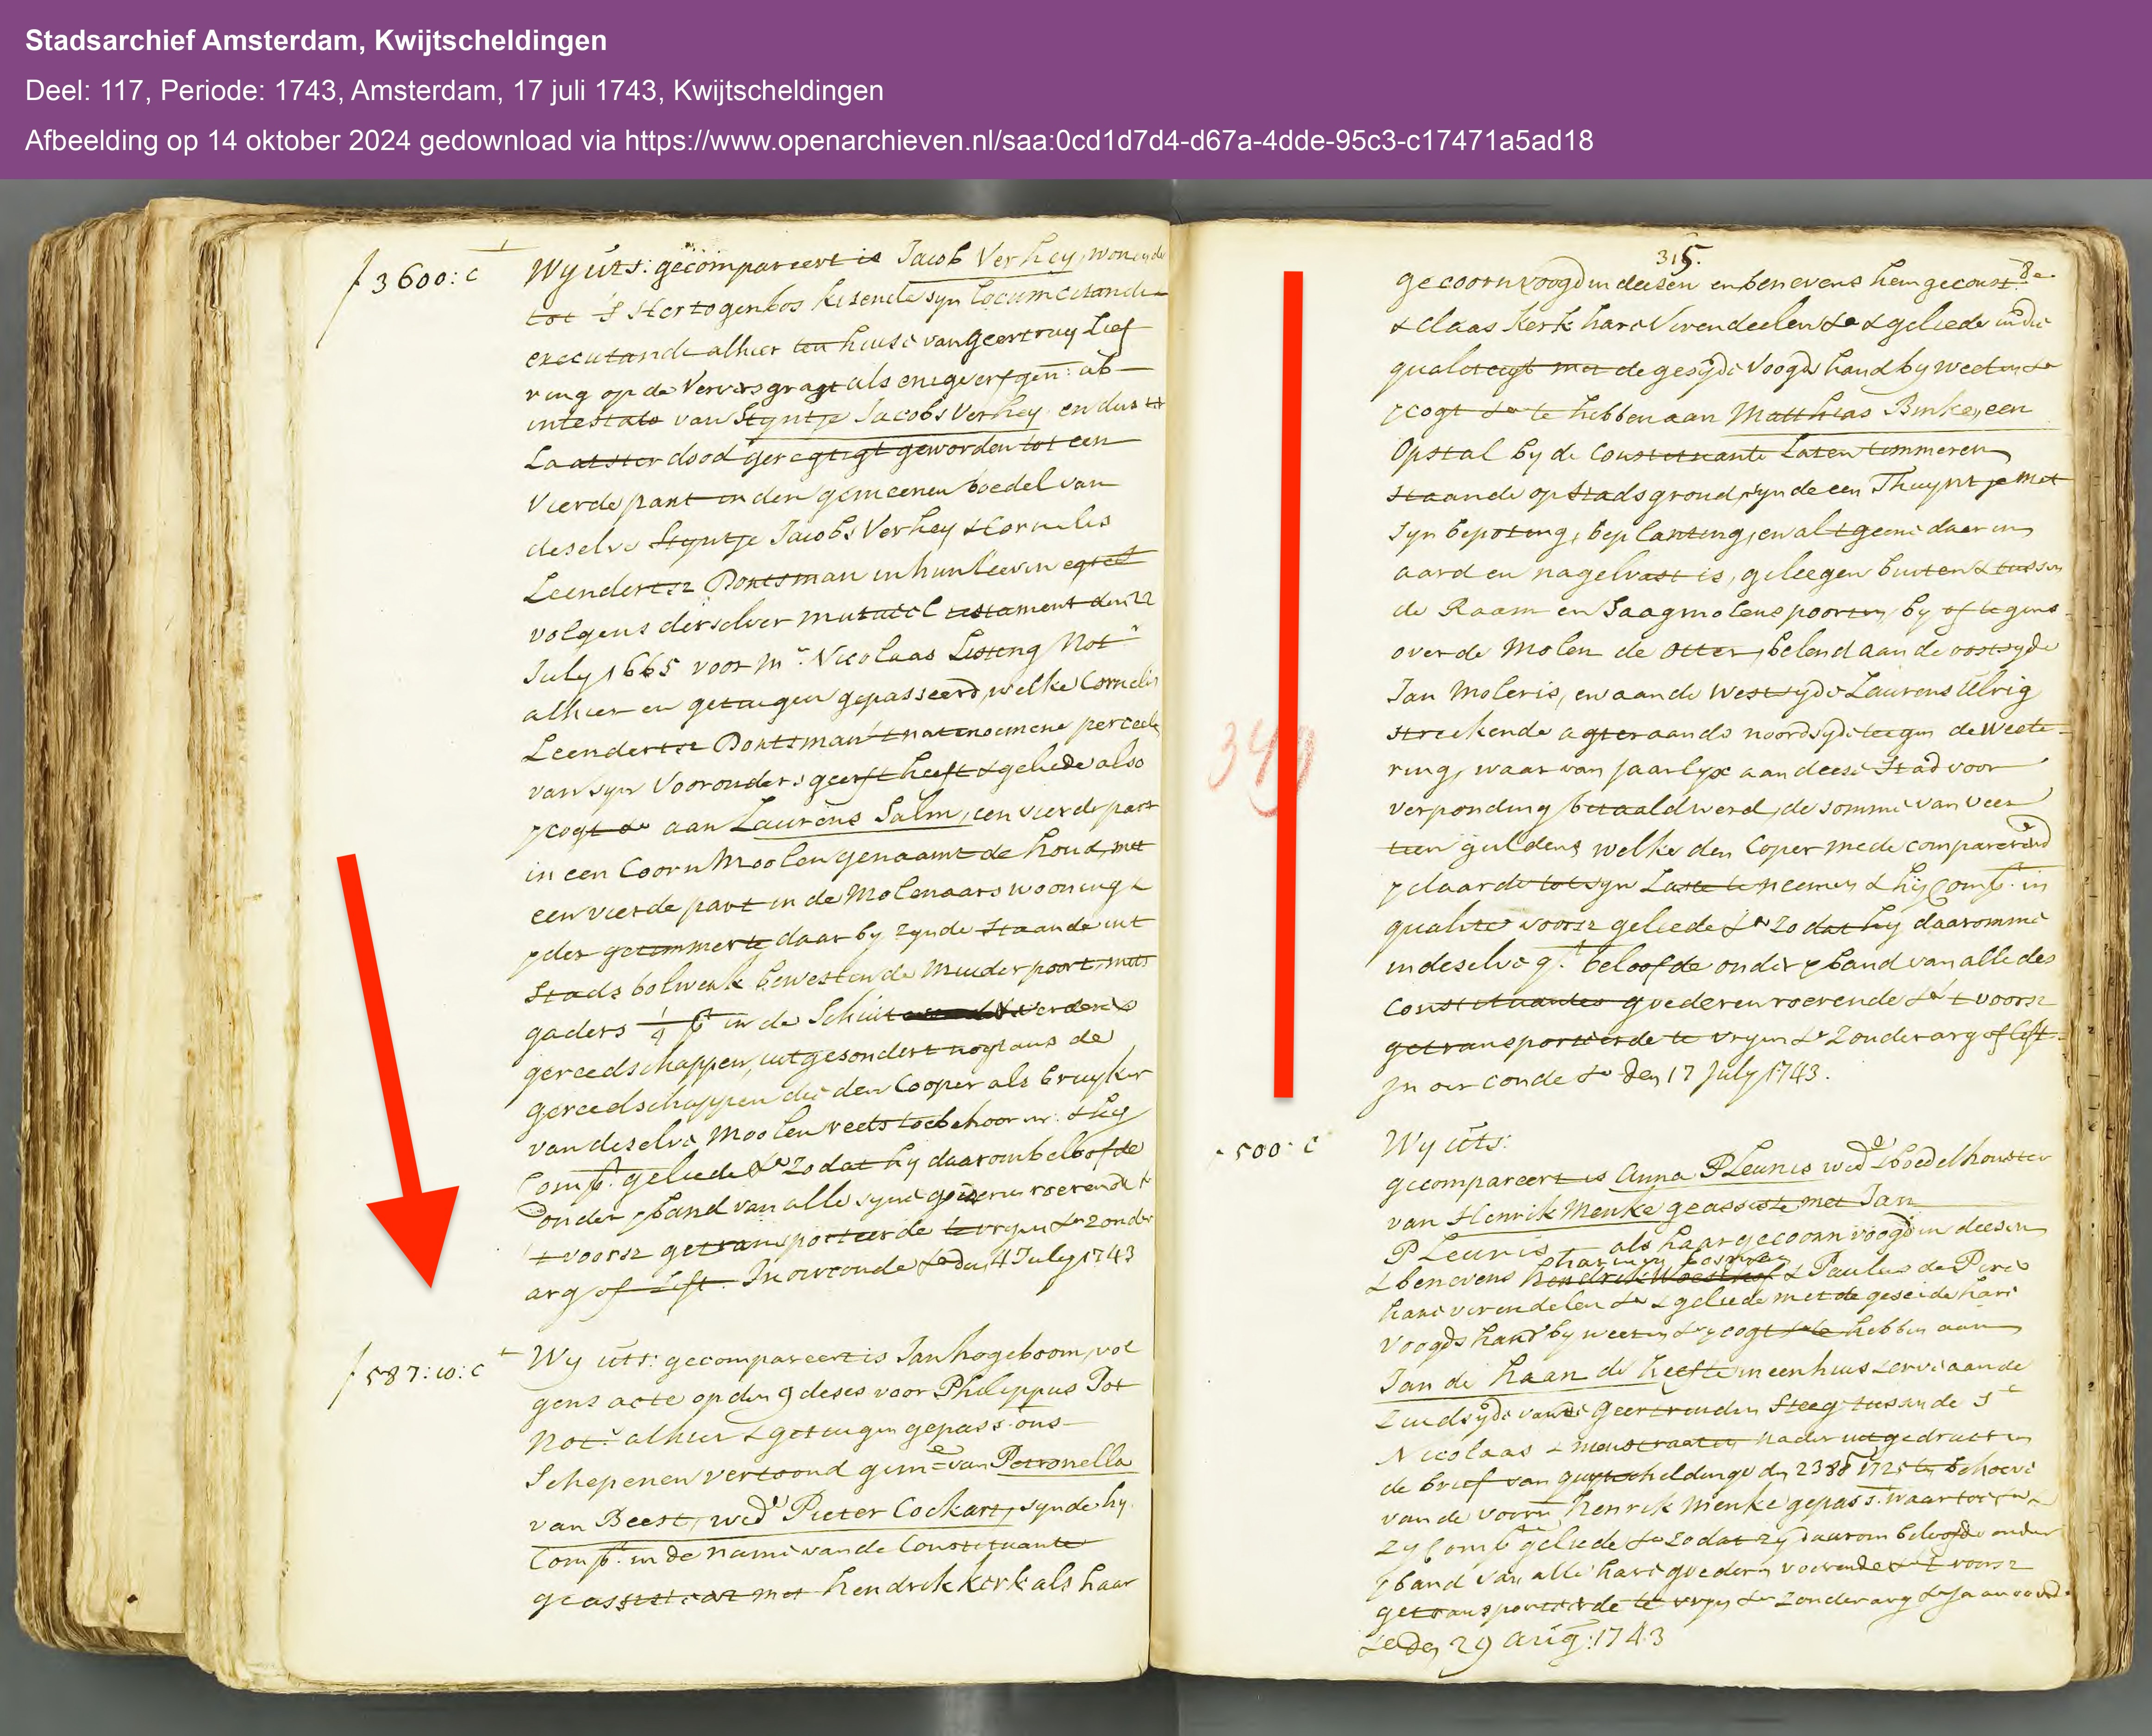 Stadsarchief Amsterdam, Kwijtscheldingen
Deel: 117, Periode: 1743, Amsterdam, 17 juli 1743, Kwijtscheldingen
Afbeelding op 14 oktober 2024 gedownload via https://www.openarchieven.nl/saa:0cd1d7d4-d67a-4dde-95c3-c17471a5ad18
f 3600: c
Wij uts: gecompareert is Jacob Verheij, wonende
tot 'S Hertogenbos kisende syn locum citandi
executandi alhier ten huise van Geertruy Lief
ring op de Verwersgragt als enige erfgen: ab
intestato van Styntje Jacobs Verheij en dus
Laatster dood geregtigt geworden tot een
Vierde part in den gemeenen boedel van
deselve Styntje Jacobs Verheij & Cornelis
Leendertsz Bontsman in hun leeven
volgens derselver mutueel testament den 22
July 1665 voor Mr. Nicolaas Listing Nots
alhier en getuigen gepasseerd, welke Cornelis
Leendertsz Bontsman 't natenoemene perceel
van syn Voorouders geerft heeft & geliede also
vcogt &a aan Laurens Salm, een vierde part
in een Coorn Moolen genaamt de hond, met
een vierde part in de Molenaars wooning &
vder getimmerte daar by zynde staande int
Stads bolwerk bewesten de Muider poort, mits
gaders 1/4 pt in de Schuit verdere
gereedschappen, uitgesondert nogtans de
gereedschappen die den Cooper als bruyker
van deselve Moolen reets toebehooren: & hy
Compt. geliede &a Zodat hy daarom beloofde
onder vband van alle syne goederen roerende &
't voorsz getransporteerde te vryen &a zonder
arg of list. In oirconde &a den 4 July 1743
f 587:10: c
Wij uts: gecompareert is Jan hogeboom, vol
gens acte op den 9 deses voor Philippus Pot
Nots. alhier & getuigen gepass: ons
Schepenen vertoond gem: van Petronella
van Beest, wede Pieter Cockart, synde hy
Compt. in de name van de Constituante
geassisteert met hendrik kerk als haar
315.
gecooren voogd in deesen en benevens hem geconst.
& Claas Kerk hare Virendeelen &a & geliede in die
qualiteyt met de gesyde Voogds hand by weeten &a
vcogt &a te hebben aan Matthias Binke, een
Opstal by de Constituante Laten timmeren
staande op Stads grond, synde een Thuyntje met
syn bepoting, beplanting, en al 't geene daer in
aard en nagelvast is, geleegen buiten & tussen
de Raam en Saagmolens poorten, by of tegens
over de Molen de Otter, belend aan de oostsyde
Jan Moleris, en aan de Westsyde Laurens Ulrig
streckende agter aan de noordsyde teegen de Weete
ring, waar van jaarlyx aan deese Stad voor
verponding betaald werd, de somme van veer
tien guldens welke den Coper mede comparerend
vclaarde tot syn Laste te neemen & hij Compt. in
qualite voorsz geliede &a Zo dat hy daaromme
in deselve qt. beloofde onder vband van alle des
Constituantes goederen roerende &a 't voorsz
getransporteerde te vryen &a Zonder arg of list
In oirconde &a Den 17 July 1743.
349
500: c
Wy uts:
gecompareert is Anna Pleunis wede & boedelhouster
van Henrik Menke geassiste met Jan
Pleunis als haar gecooren voogd in deesen
harmen Bosman
& benevens hendrik Woesthof & Paulus de Pire
hare virendelen &a & geliede met de geseide hare
Voogds hand by weeten &a vcogt &a te hebben aan
Jan de Haan de helfte in een huis & erve aan de
Zuidsyde van de Geertruiden steeg tussen de St
Nicolaas & monstraaten nader uitgedrukt in
de brief van quytscheldinge den 23 1725 ten behoeve
van de voorn: henrik Menke gepass: waar toe
zy Compte geliede &a zodat zy daarom beloofde onder
vband van alle hare goederen roerende &a 't voorsz
getransporteerde te vryen &a Zonder arg
den 29 Aug: 1743